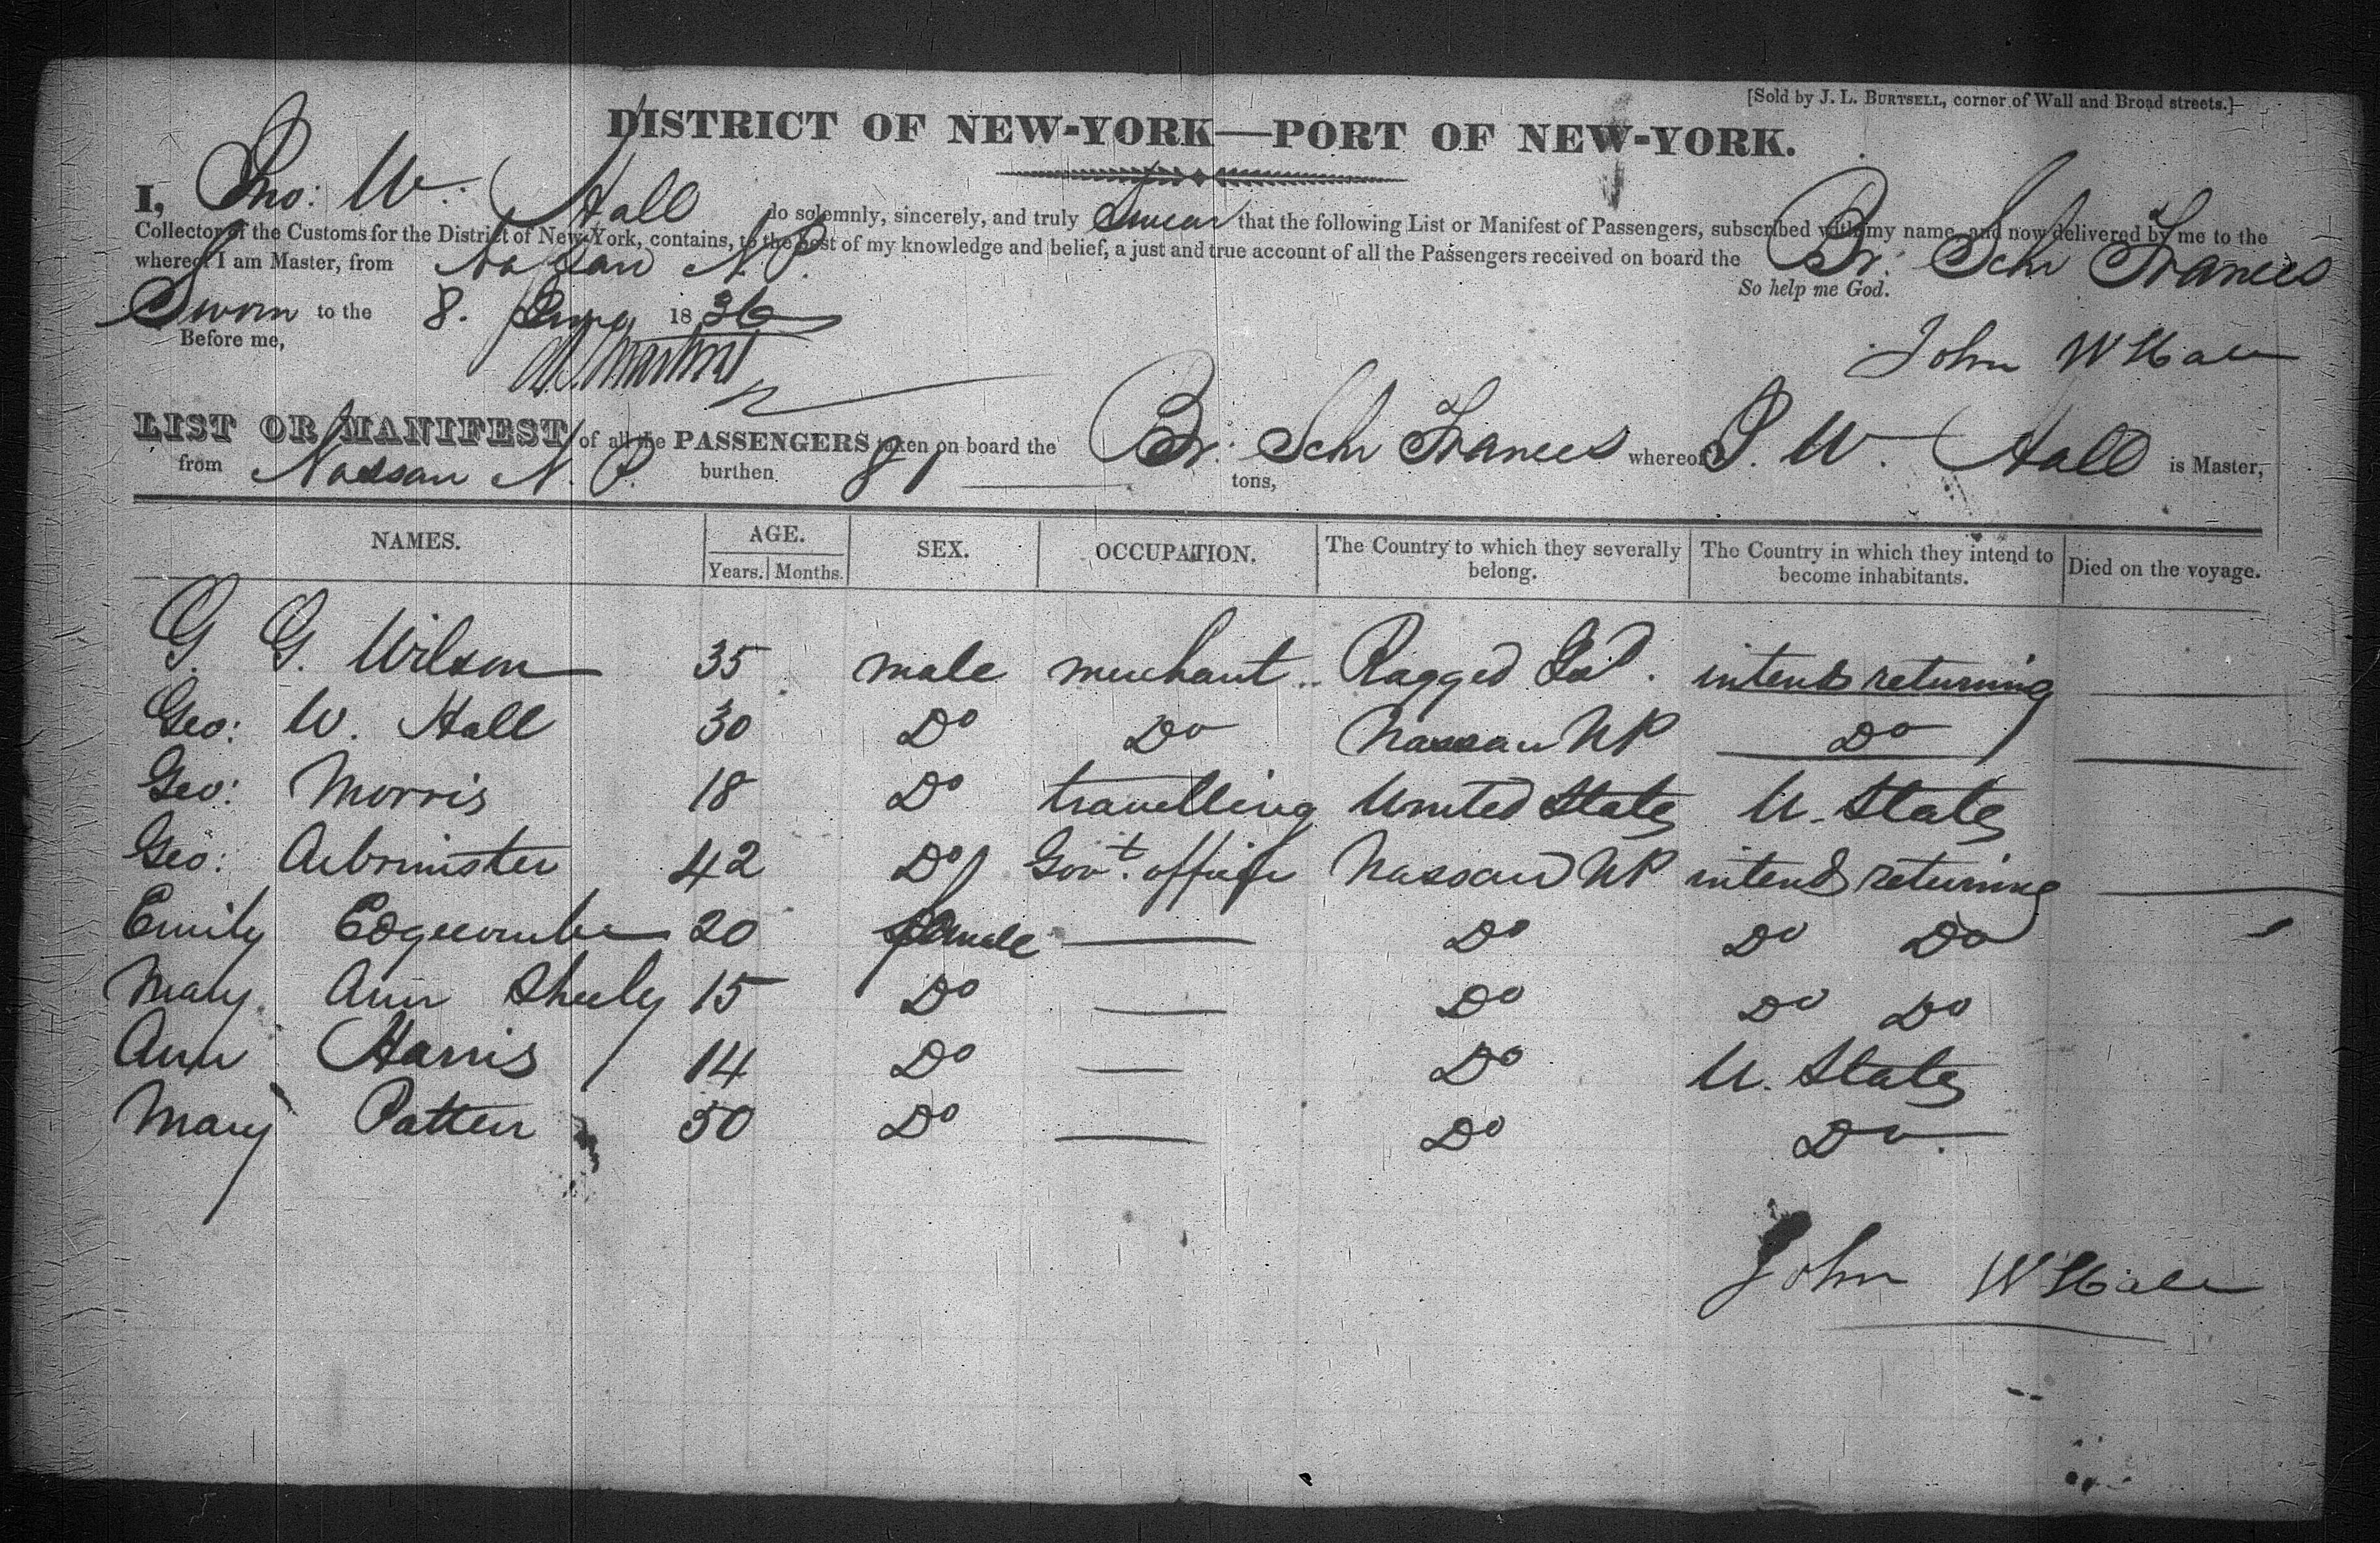 [Sold by J. L. BURTSELL, corner of Wall and Broad streets.]
DISTRICT OF NEW-YORK—PORT OF NEW-YORK.
I, Jno: W. Hall do solemnly, sincerely, and truly Swear that the following List or Manifest of Passengers, subscribed with my name, and now delivered by me to the
Collector of the Customs for the District of New-York, contains, to the best of my knowledge and belief, a just and true account of all the Passengers received on board the Br: Schr Frances
whereof I am Master, from Nassau N.P.
So help me God.
Sworn to the 8. 1836
Before me,
John W Hall
LIST OR MANIFEST of all the PASSENGERS taken on board the Br. Schr Frances whereof J. W. Hall is Master,
from Nassau N. P. burthen 81 tons,
NAMES. AGE. Years. Months. SEX. OCCUPATION. The Country to which they severally belong. The Country in which they intend to become inhabitants. Died on the voyage.
G. G. Wilson 35 male merchant Ragged Isd. intends returning
Geo: W. Hall 30 Do Do Nassau NP Do
Geo: Morris 18 Do travelling United States U. States
Geo: Arbrinister 42 Do Govt. officer Nassau NP intends returning
Emily Edgecombe 20 female — Do Do Do
Mary Ann Sheely 15 Do — Do Do Do
Ann Harris 14 Do — Do U. States
Mary Patten 50 Do — Do Do
John W Hall